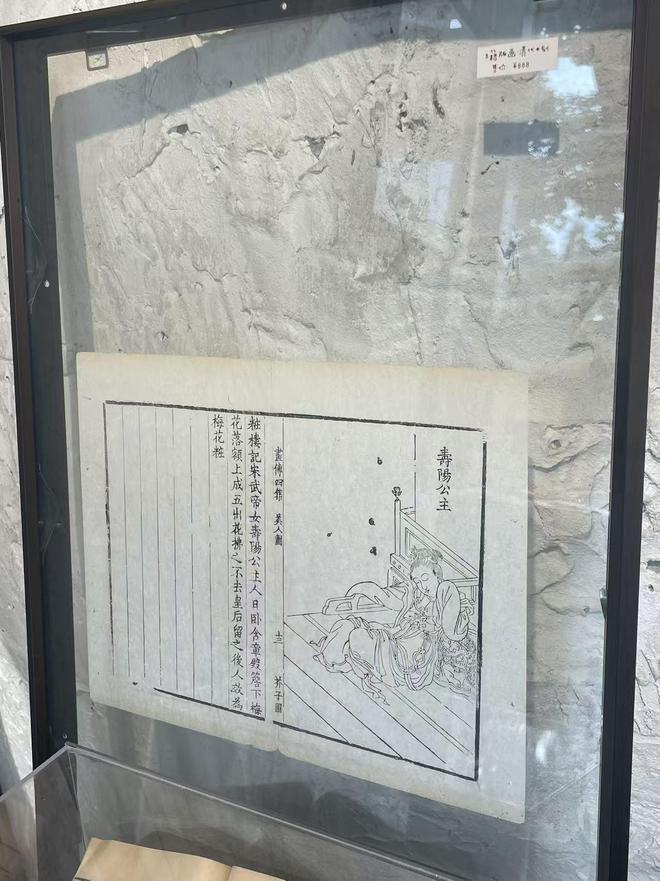 古籍版画 清代木刻
售价 ¥888
壽陽公主
畫傳四集 美人圖 十三 芥子園
粧樓記宋武帝女壽陽公主人日卧含章殿簷下梅
花落額上成五出花拂之不去皇后留之後人故為
梅花粧